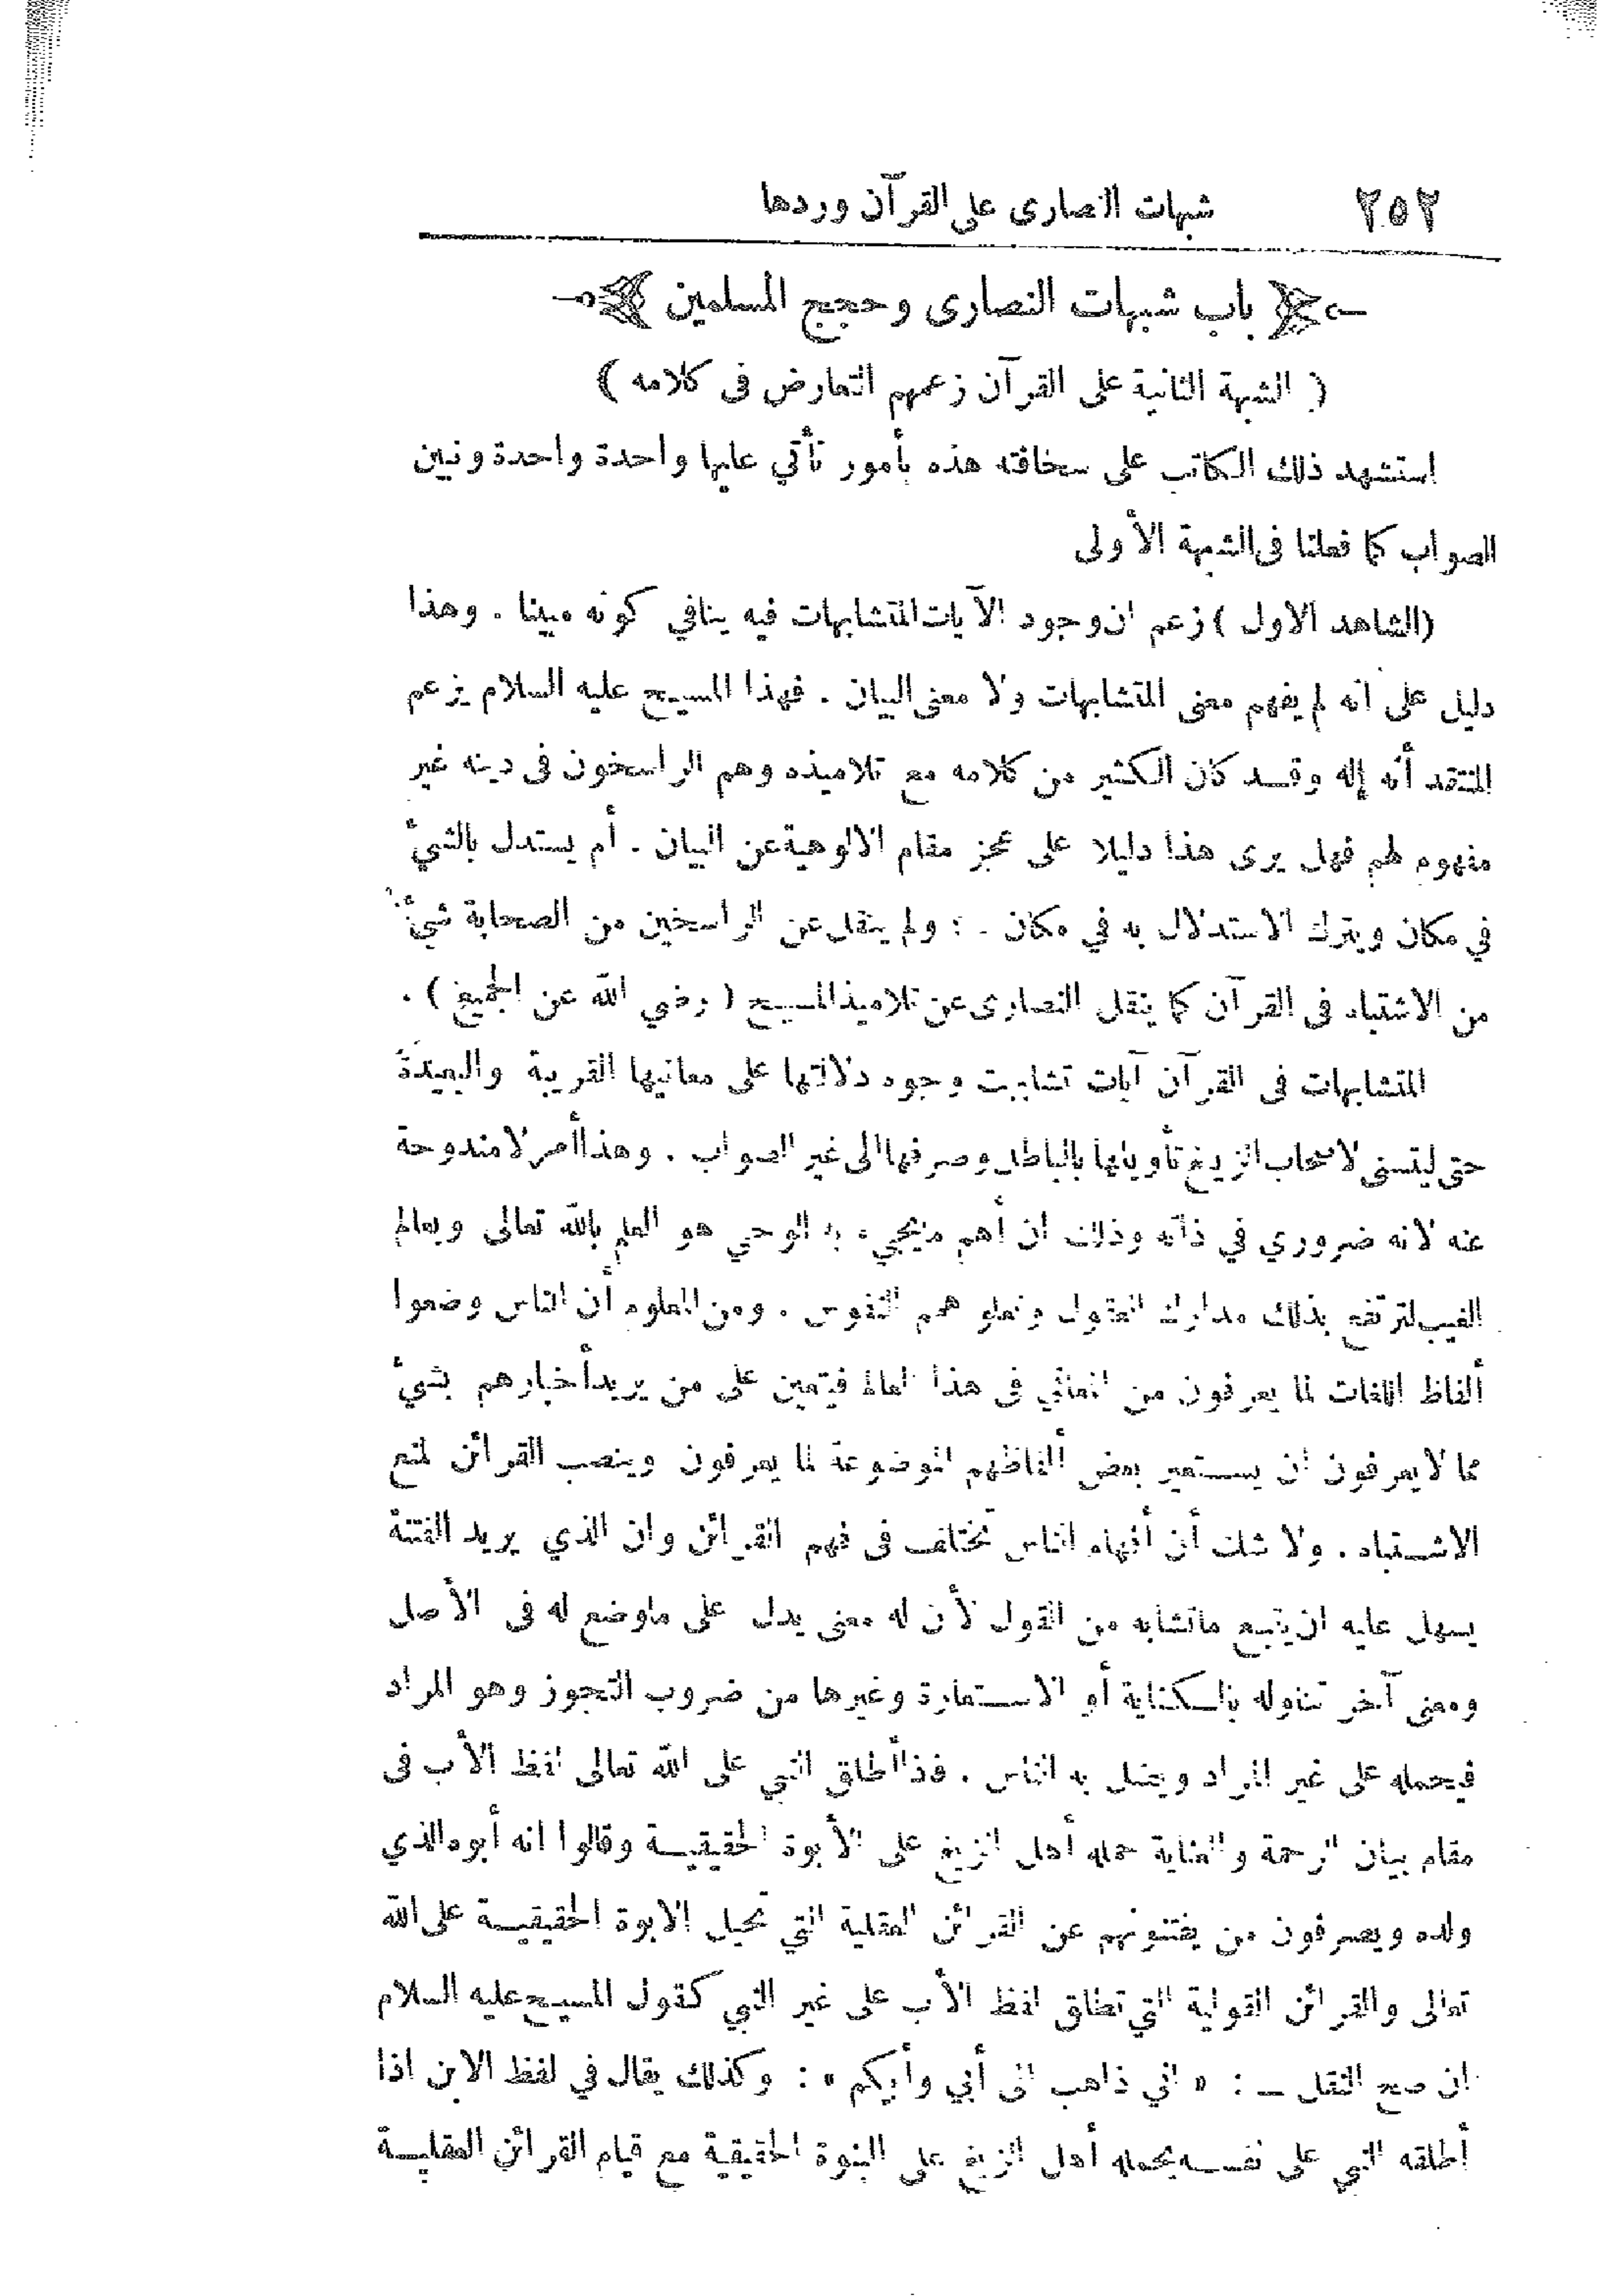 ٢٥٢ شبهات النصارى على القرآن وردها
باب شبهات النصارى وحجج المسلمين
( الشبهة الثانية على القرآن زعمهم التعارض فى كلامه )
استشهد ذلك الكاتب على سخافته هذه بأمور نأتي عليها واحدة واحدة ونبين
الصواب كما فعلنا فى الشبهة الأولى
(الشاهد الاول ) زعم ان وجود الآيات المتشابهات فيه ينافي كونه مبينا . وهذا
دليل على أنه لم يفهم معنى المتشابهات ولا معنى البيان . فهذا المسيح عليه السلام يزعم
المنتقد أنه إله وقد كان الكثير من كلامه مع تلاميذه وهم الراسخون فى دينه غير
مفهوم لهم فهل يرى هذا دليلا على عجز مقام الالوهية عن البيان . أم يستدل بالشيء
في مكان ويترك الاستدلال به في مكان . : ولم ينقل عن الراسخين من الصحابة شيء
من الاشتباه فى القرآن كما ينقل النصارى عن تلاميذ المسيح ( رضي الله عن الجميع ) .
المتشابهات فى القرآن آيات تشابهت وجوه دلالتها على معانيها القريبة والبعيدة
حتى ليتسنى لاصحاب الزيغ تأويلها بالباطل وصرفها الى غير الصواب . وهذا أمر لا مندوحة
عنه لانه ضروري في ذاته وذلك ان أهم ما يجيء به الوحي هو العلم بالله تعالى وبعالم
الغيب لترتفع بذلك مدارك العقول وتعلو همم النفوس . ومن المعلوم أن الناس وضعوا
ألفاظ اللغات لما يعرفون من المعاني فى هذا العالم فيتعين على من يريد أخبارهم بشيء
مما لا يعرفون ان يستعير بعض ألفاظهم الموضوعة لما يعرفون وينصب القرائن لمنع
الاشتباه . ولا شك أن أفهام الناس تختلف فى فهم القرائن وان الذي يريد الفتنة
يسهل عليه ان يتبع ما تشابه من القول لأن له معنى يدل على ما وضع له فى الأصل
ومعنى آخر تناوله بالكناية أو الاستعارة وغيرها من ضروب التجوز وهو المراد
فيحمله على غير المراد ويضل به الناس . فاذا أطلق النبي على الله تعالى لفظ الأب فى
مقام بيان الرحمة والعناية حمله أهل الزيغ على الأبوة الحقيقية وقالوا انه أبوه الذي
ولده ويصرفون من يفتنونهم عن القرائن العقلية التي تحيل الابوة الحقيقية على الله
تعالى والقرائن القولية التي تطلق لفظ الأب على غير النبي كقول المسيح عليه السلام
ان صح النقل ــ : « اني ذاهب الى أبي وأبيكم » : وكذلك يقال في لفظ الابن اذا
أطلقه النبي على نفسه يحمله أهل الزيغ على البنوة الحقيقية مع قيام القرائن العقلية